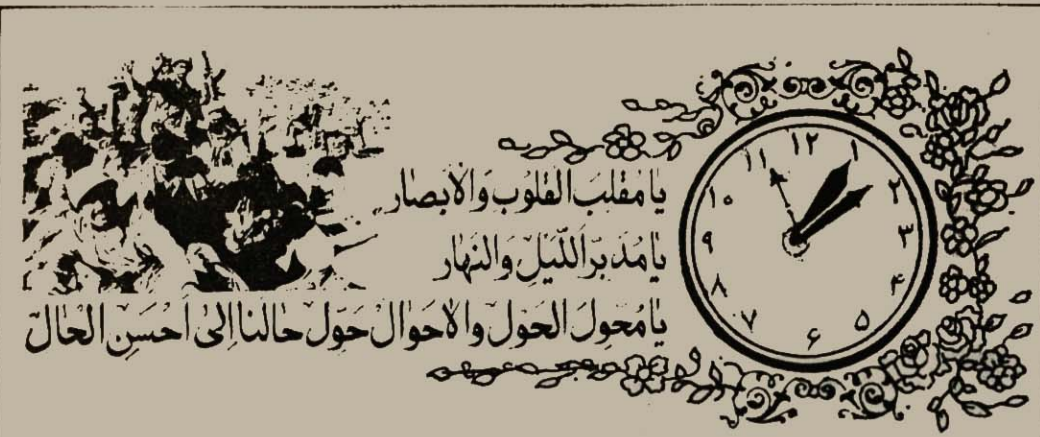 یا مُقَلِّبَ القُلُوبِ وَالاَبصار
یا مُدَبِّرَ اللَّیلِ وَالنَهار
یا مُحَوِّلَ الحَولِ وَالاَحوال حَوِّل حالَنا اِلیٰ اَحسَنِ الحال
۱۲
۱
۲
۳
۴
۵
۶
۷
۸
۹
۱۰
۱۱